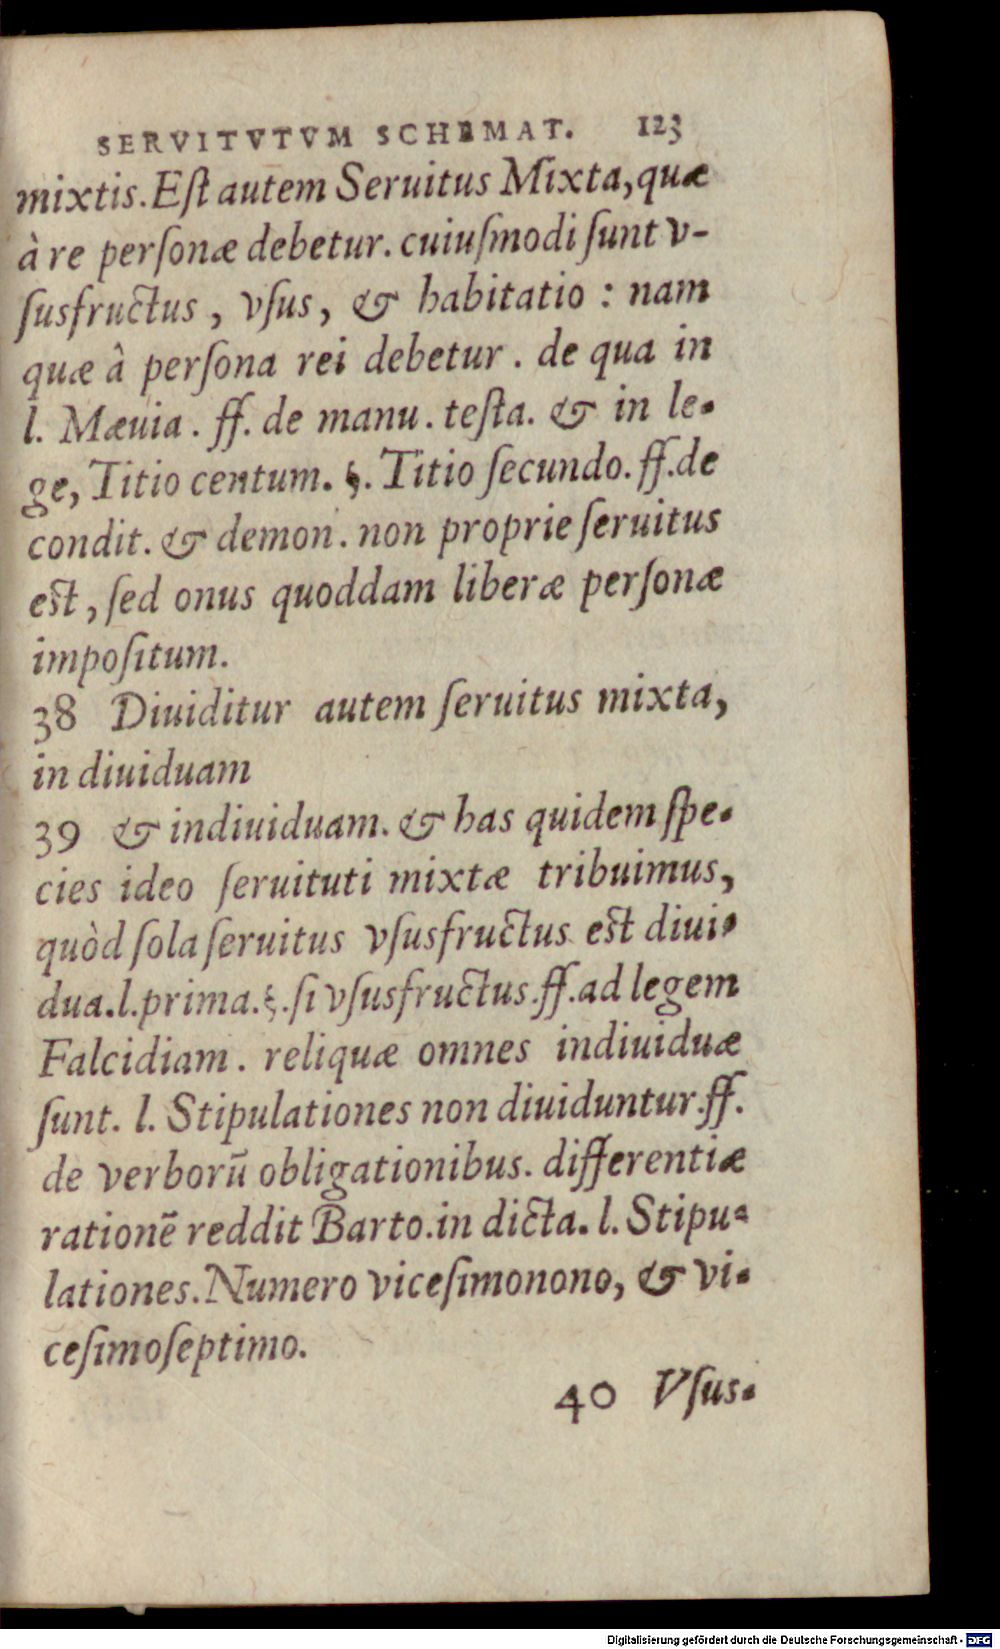 SERVITVTVM SCHEMAT. 123
mixtis. Eſt autem Seruitus Mixta, quæ
à re perſonæ debetur. cuiuſmodi ſunt v-
ſusfructus, vſus, & habitatio : nam
quæ â perſona rei debetur. de qua in
l. Mæuia. ff. de manu. teſta. & in le-
ge, Titio centum. §. Titio ſecundo. ff. de
condit. & demon. non proprie ſeruitus
est, ſed onus quoddam liberæ perſonæ
impoſitum.
38 Diuiditur autem ſeruitus mixta,
in diuiduam
39 & indiuiduam. & has quidem ſpe-
cies ideo ſeruituti mixtæ tribuimus,
quòd ſola ſeruitus vſusfructus est diui-
dua. l. prima. §. ſi vſusfructus. ff. ad legem
Falcidiam. reliquæ omnes indiuiduæ
ſunt. l. Stipulationes non diuiduntur. ff.
de verborū obligationibus. differentiæ
rationē reddit Barto. in dicta. l. Stipu-
lationes. Numero viceſimonono, & vi-
ceſimoſeptimo.
40 Vſus-
Digitalisierung gefördert durch die Deutsche Forschungsgemeinschaft - DFG